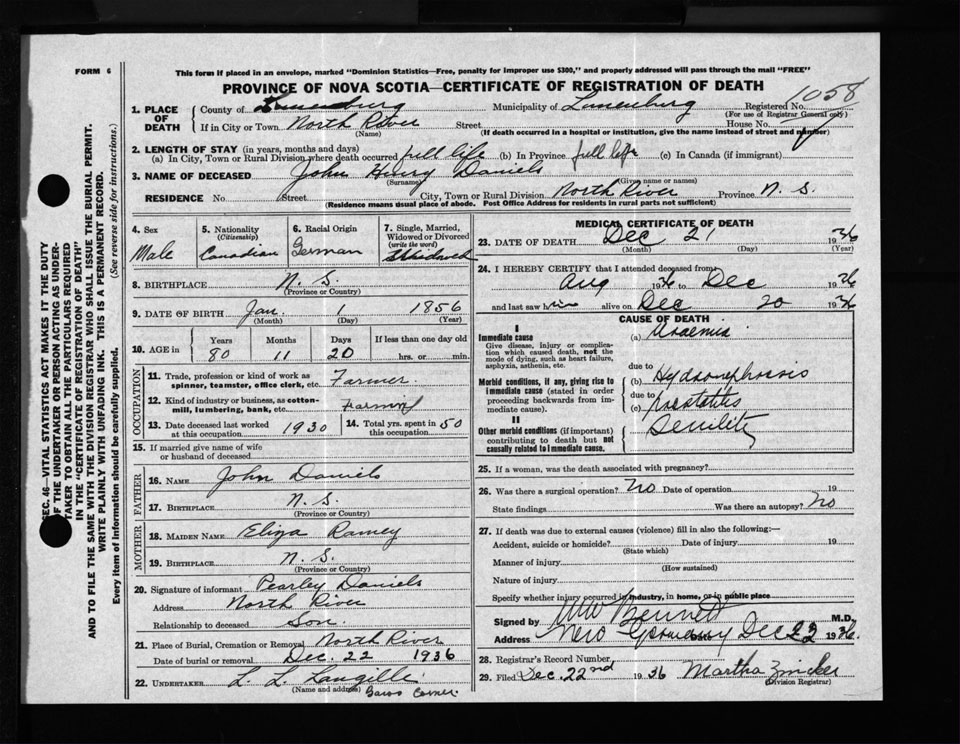 FORM 6
This form if placed in an envelope, marked "Dominion Statistics—Free, penalty for improper use $300," and properly addressed will pass through the mail "FREE"
PROVINCE OF NOVA SCOTIA—CERTIFICATE OF REGISTRATION OF DEATH
1058
1. PLACE OF DEATH
County of Lunenburg Municipality of Lunenburg Registered No.
(For use of Registrar General only)
If in City or Town North River Street House No.
(Name) (If death occurred in a hospital or institution, give the name instead of street and number)
2. LENGTH OF STAY (in years, months and days)
(a) In City, Town or Rural Division where death occurred full life (b) In Province full life (c) In Canada (if immigrant)
3. NAME OF DECEASED John Henry Daniels
(Surname) (Given name or names)
RESIDENCE No Street City, Town or Rural Division North River Province N. S.
(Residence means usual place of abode. Post Office Address for residents in rural parts not sufficient)
4. Sex Male
5. Nationality (Citizenship) Canadian
6. Racial Origin German
7. Single, Married, Widowed or Divorced (write the word)
8. BIRTHPLACE N. S.
(Province or Country)
9. DATE OF BIRTH Jan. 1 1856
(Month) (Day) (Year)
10. AGE in Years Months Days If less than one day old
80 11 20 hrs. or min.
OCCUPATION
11. Trade, profession or kind of work as spinner, teamster, office clerk, etc. Farmer.
12. Kind of industry or business, as cotton-mill, lumbering, bank, etc. Farming
13. Date deceased last worked at this occupation 1930
14. Total yrs. spent in this occupation 50
15. If married give name of wife or husband of deceased
FATHER
16. NAME John Daniels
17. BIRTHPLACE N. S.
(Province or Country)
MOTHER
18. MAIDEN NAME Eliza Ramey
19. BIRTHPLACE N. S.
(Province or Country)
20. Signature of informant Pearley Daniels
Address North River
Relationship to deceased Son.
21. Place of Burial, Cremation or Removal North River
Date of burial or removal Dec. 22 1936
22. UNDERTAKER L. L. Langille
(Name and address) Corner.
MEDICAL CERTIFICATE OF DEATH
23. DATE OF DEATH Dec 21 1936
(Month) (Day) (Year)
24. I HEREBY CERTIFY that I attended deceased from
Aug 1936 to Dec 1936
and last saw him alive on Dec 20 1936
CAUSE OF DEATH
I
Immediate cause
Give disease, injury or complication which caused death, not the mode of dying, such as heart failure, asphyxia, asthenia, etc.
(a) Uraemia
due to
Morbid conditions, if any, giving rise to immediate cause (stated in order proceeding backwards from immediate cause).
(b) Hydronephrosis
due to
(c) Prostatitis
II
Other morbid conditions (if important) contributing to death but not causally related to immediate cause.
Senility
25. If a woman, was the death associated with pregnancy?
26. Was there a surgical operation? No Date of operation 19
State findings Was there an autopsy? No
27. If death was due to external causes (violence) fill in also the following:—
Accident, suicide or homicide? Date of injury 19
(State which)
Manner of injury
(How sustained)
Nature of injury
Specify whether injury occurred in industry, in home, or in public place
Signed by Bennett M.D.
Address New Germany Dec 22 1936.
28. Registrar's Record Number
29. Filed Dec. 22nd 1936 Martha Zincker
(Division Registrar)
SEC. 46—VITAL STATISTICS ACT MAKES IT THE DUTY
OF THE UNDERTAKER OR PERSON ACTING AS UNDER-
TAKER TO OBTAIN ALL THE PARTICULARS REQUIRED
IN THE "CERTIFICATE OF REGISTRATION OF DEATH"
AND TO FILE THE SAME WITH THE DIVISION REGISTRAR WHO SHALL ISSUE THE BURIAL PERMIT.
WRITE PLAINLY WITH UNFADING INK. THIS IS A PERMANENT RECORD.
Every item of information should be carefully supplied. (See reverse side for instructions.)